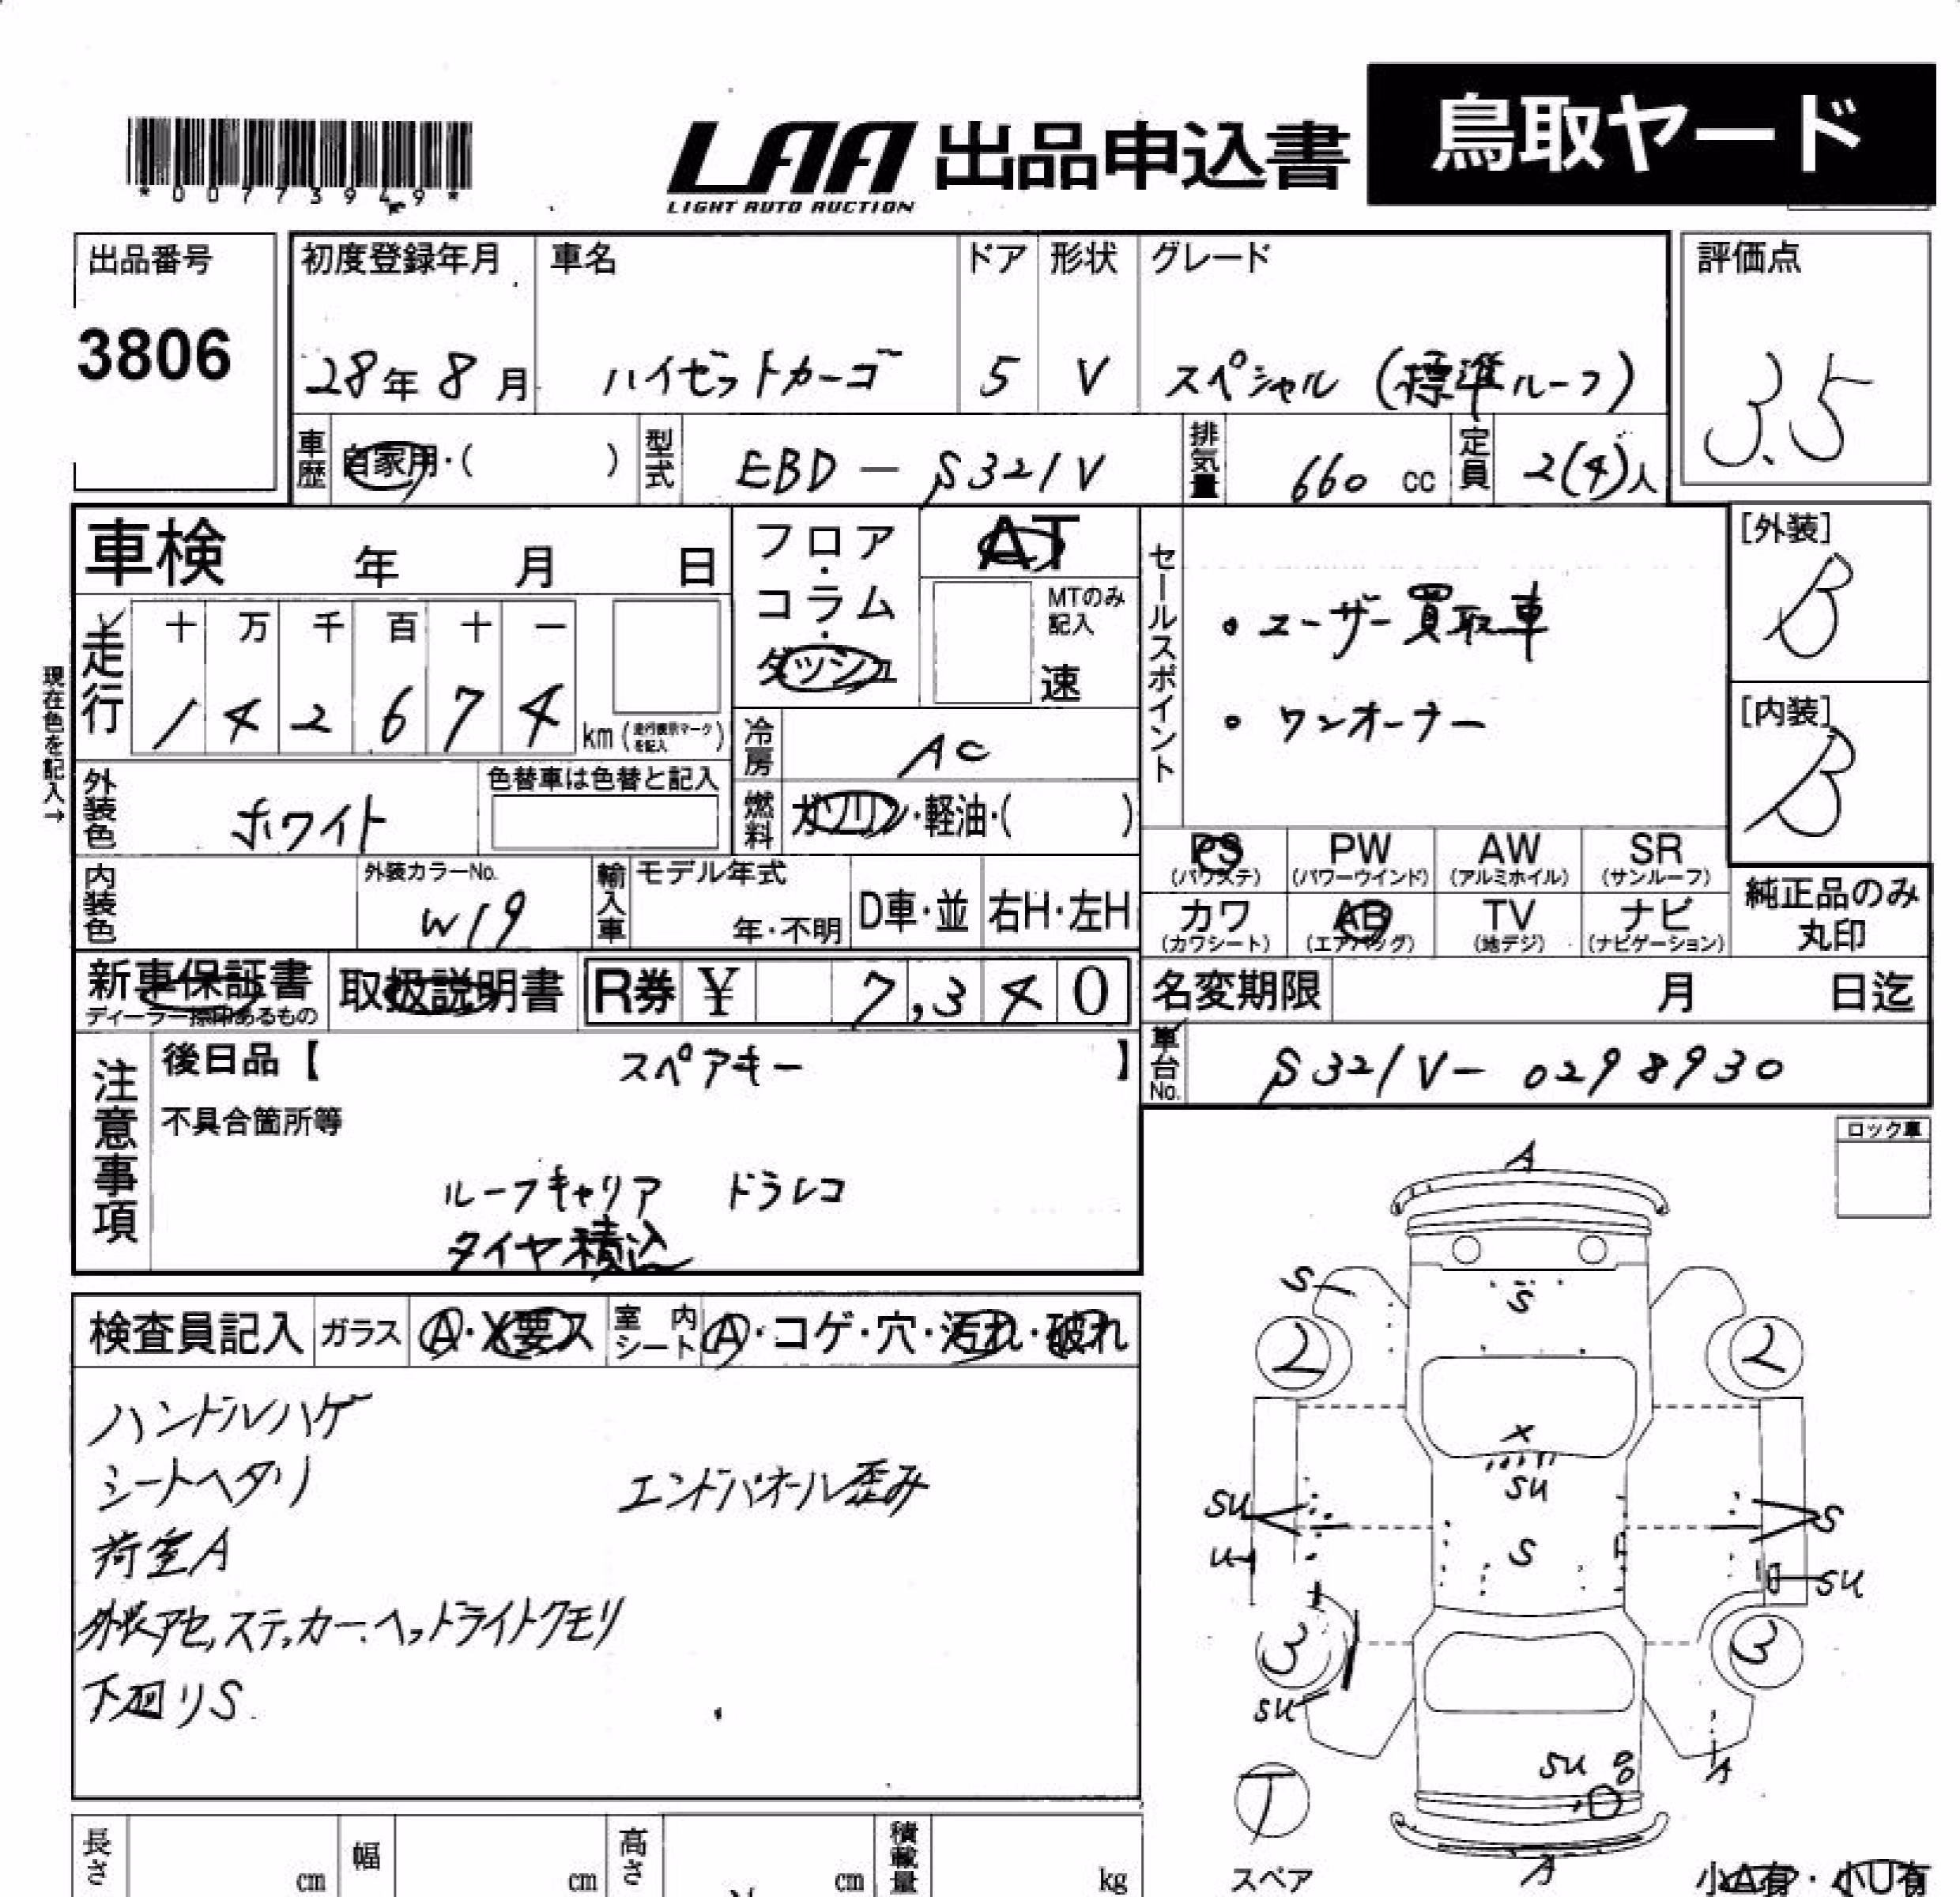 *00773949*
LAA 出品申込書 鳥取ヤード
LIGHT AUTO AUCTION
出品番号 初度登録年月 車名 ドア 形状 グレード 評価点
3806 28年 8月 ハイゼットカーゴ 5 V スペシャル (標準ルーフ) 3.5
車歴 自家用・( ) 型式 EBD-S321V 排気量 660 cc 定員 2(4)人
車検 年 月 日 フロア・コラム・ダッシュ AT
MTのみ記入 速
セールスポイント
・ユーザー買取車
・ワンオーナー
[外装] B
[内装] B
現在色を記入→
走行 十 万 千 百 十 一
1 4 2 6 7 4 km (走行表示マークを記入)
冷房 AC
外装色 ホワイト 色替車は色替と記入
燃料 ガソリン・軽油・( )
PS (パワステ) PW (パワーウインド) AW (アルミホイル) SR (サンルーフ)
カワ (カワシート) AB (エアバッグ) TV (地デジ) ナビ (ナビゲーション)
純正品のみ丸印
内装色 外装カラーNo. W19 輸入車 モデル年式 年・不明 D車・並 右H・左H
新車保証書 取扱説明書 R券 ¥ 7,340
ディーラー捺印あるもの
名変期限 月 日迄
車台No. S321V-0298930
注意事項 後日品【 スペアキー 】
不具合箇所等
ルーフキャリア ドラレコ
タイヤ積込
ロック車
検査員記入 ガラス A・X要ス 室内シート A・コゲ・穴・汚れ・破れ
ハンドルハゲ
シートヘタリ エンドパネール歪み
荷室A
外装アセ,ステッカー.ヘッドライトクモリ
下廻りS
A
S S
2 2
X
SU
SU S S
U SU
3 3
SU
SU 8 A
T D
スペア A 小A有・小U有
長さ cm 幅 cm 高さ cm 積載量 kg